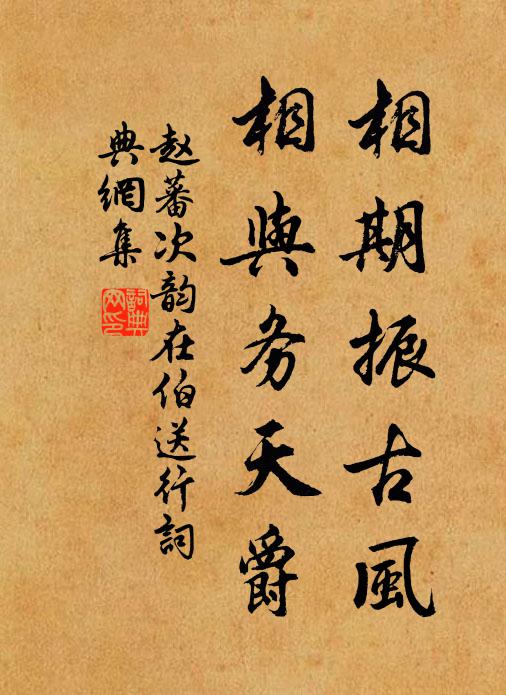 相期振古風
相與务天爵
赵蕃次韵在伯送行詞
典網集
詞典网印